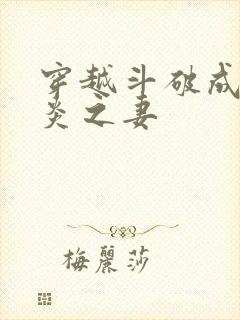 穿越斗破成
炎之妻
梅麗莎